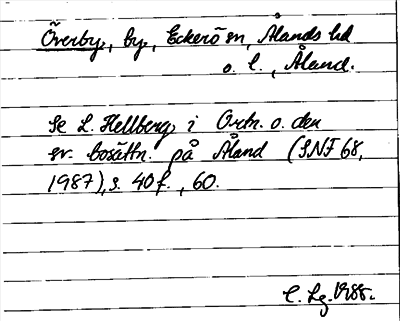 Överby, by, Eckerö sn, Ålands hd
o. l., Åland.
Se L. Hellberg, i Ortn. o. den
sv. bosättn. på Åland (SNF 68,
1987), s. 40 f., 60.
C. Lg. 1988.